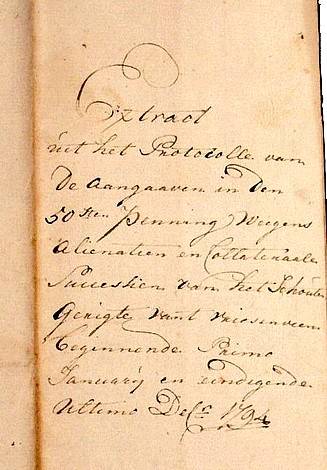 Extract
uit het Protocolle van
De Aangaaven in den
50sten Penning Weegens
Alienatien en Collateraale
Successien van het Schouten
Gerigte vant vriesenveen
beginnende Primo
January en eindigende
Ultimo Decr 1794